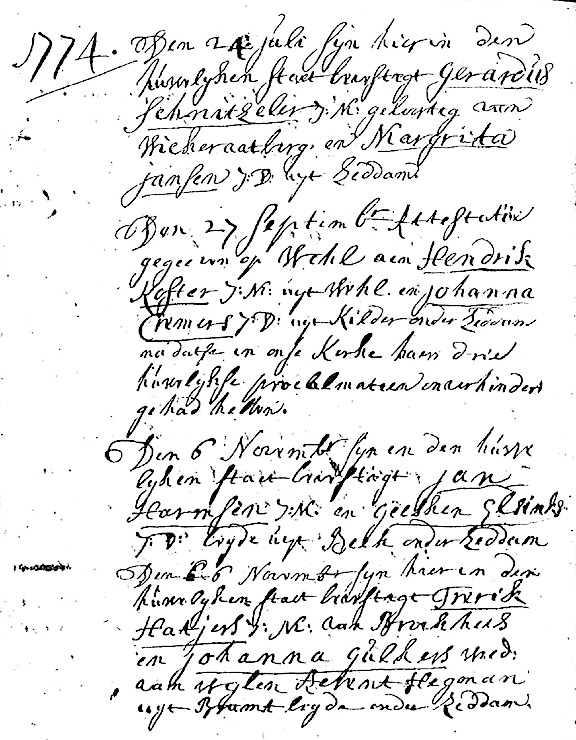 1774. Den 24 Juli syn hier in den
huwelyken staet bevestigt Gerardus
Schnitzeler J: M: geboortig van
en Margrita
Jansen J: D: uyt Zeddam
Den 27 Septembr Attestatie
gegeeven op Wehl aen Hendrik
Koster J: M: uyt Wehl en Johanna
Cremers J: D: uyt Kilder onder Zeddam
na datse in onse Kerke haer drie
huwelykse proclamatien onverhindert
gehad hebben.
Den 6 Novembr syn en den huwe
lyken staet bevestigt Jan
Harmsen J: M: en Geesken
J: D: beyde uyt Beek onder Zeddam
Den 6 Novembr syn hier in den
huwelyken staet bevestigt
J: M: van
en Johanna Gulkers wed:
van wylen Berent Hegeman
uyt beyde onder Zeddam.